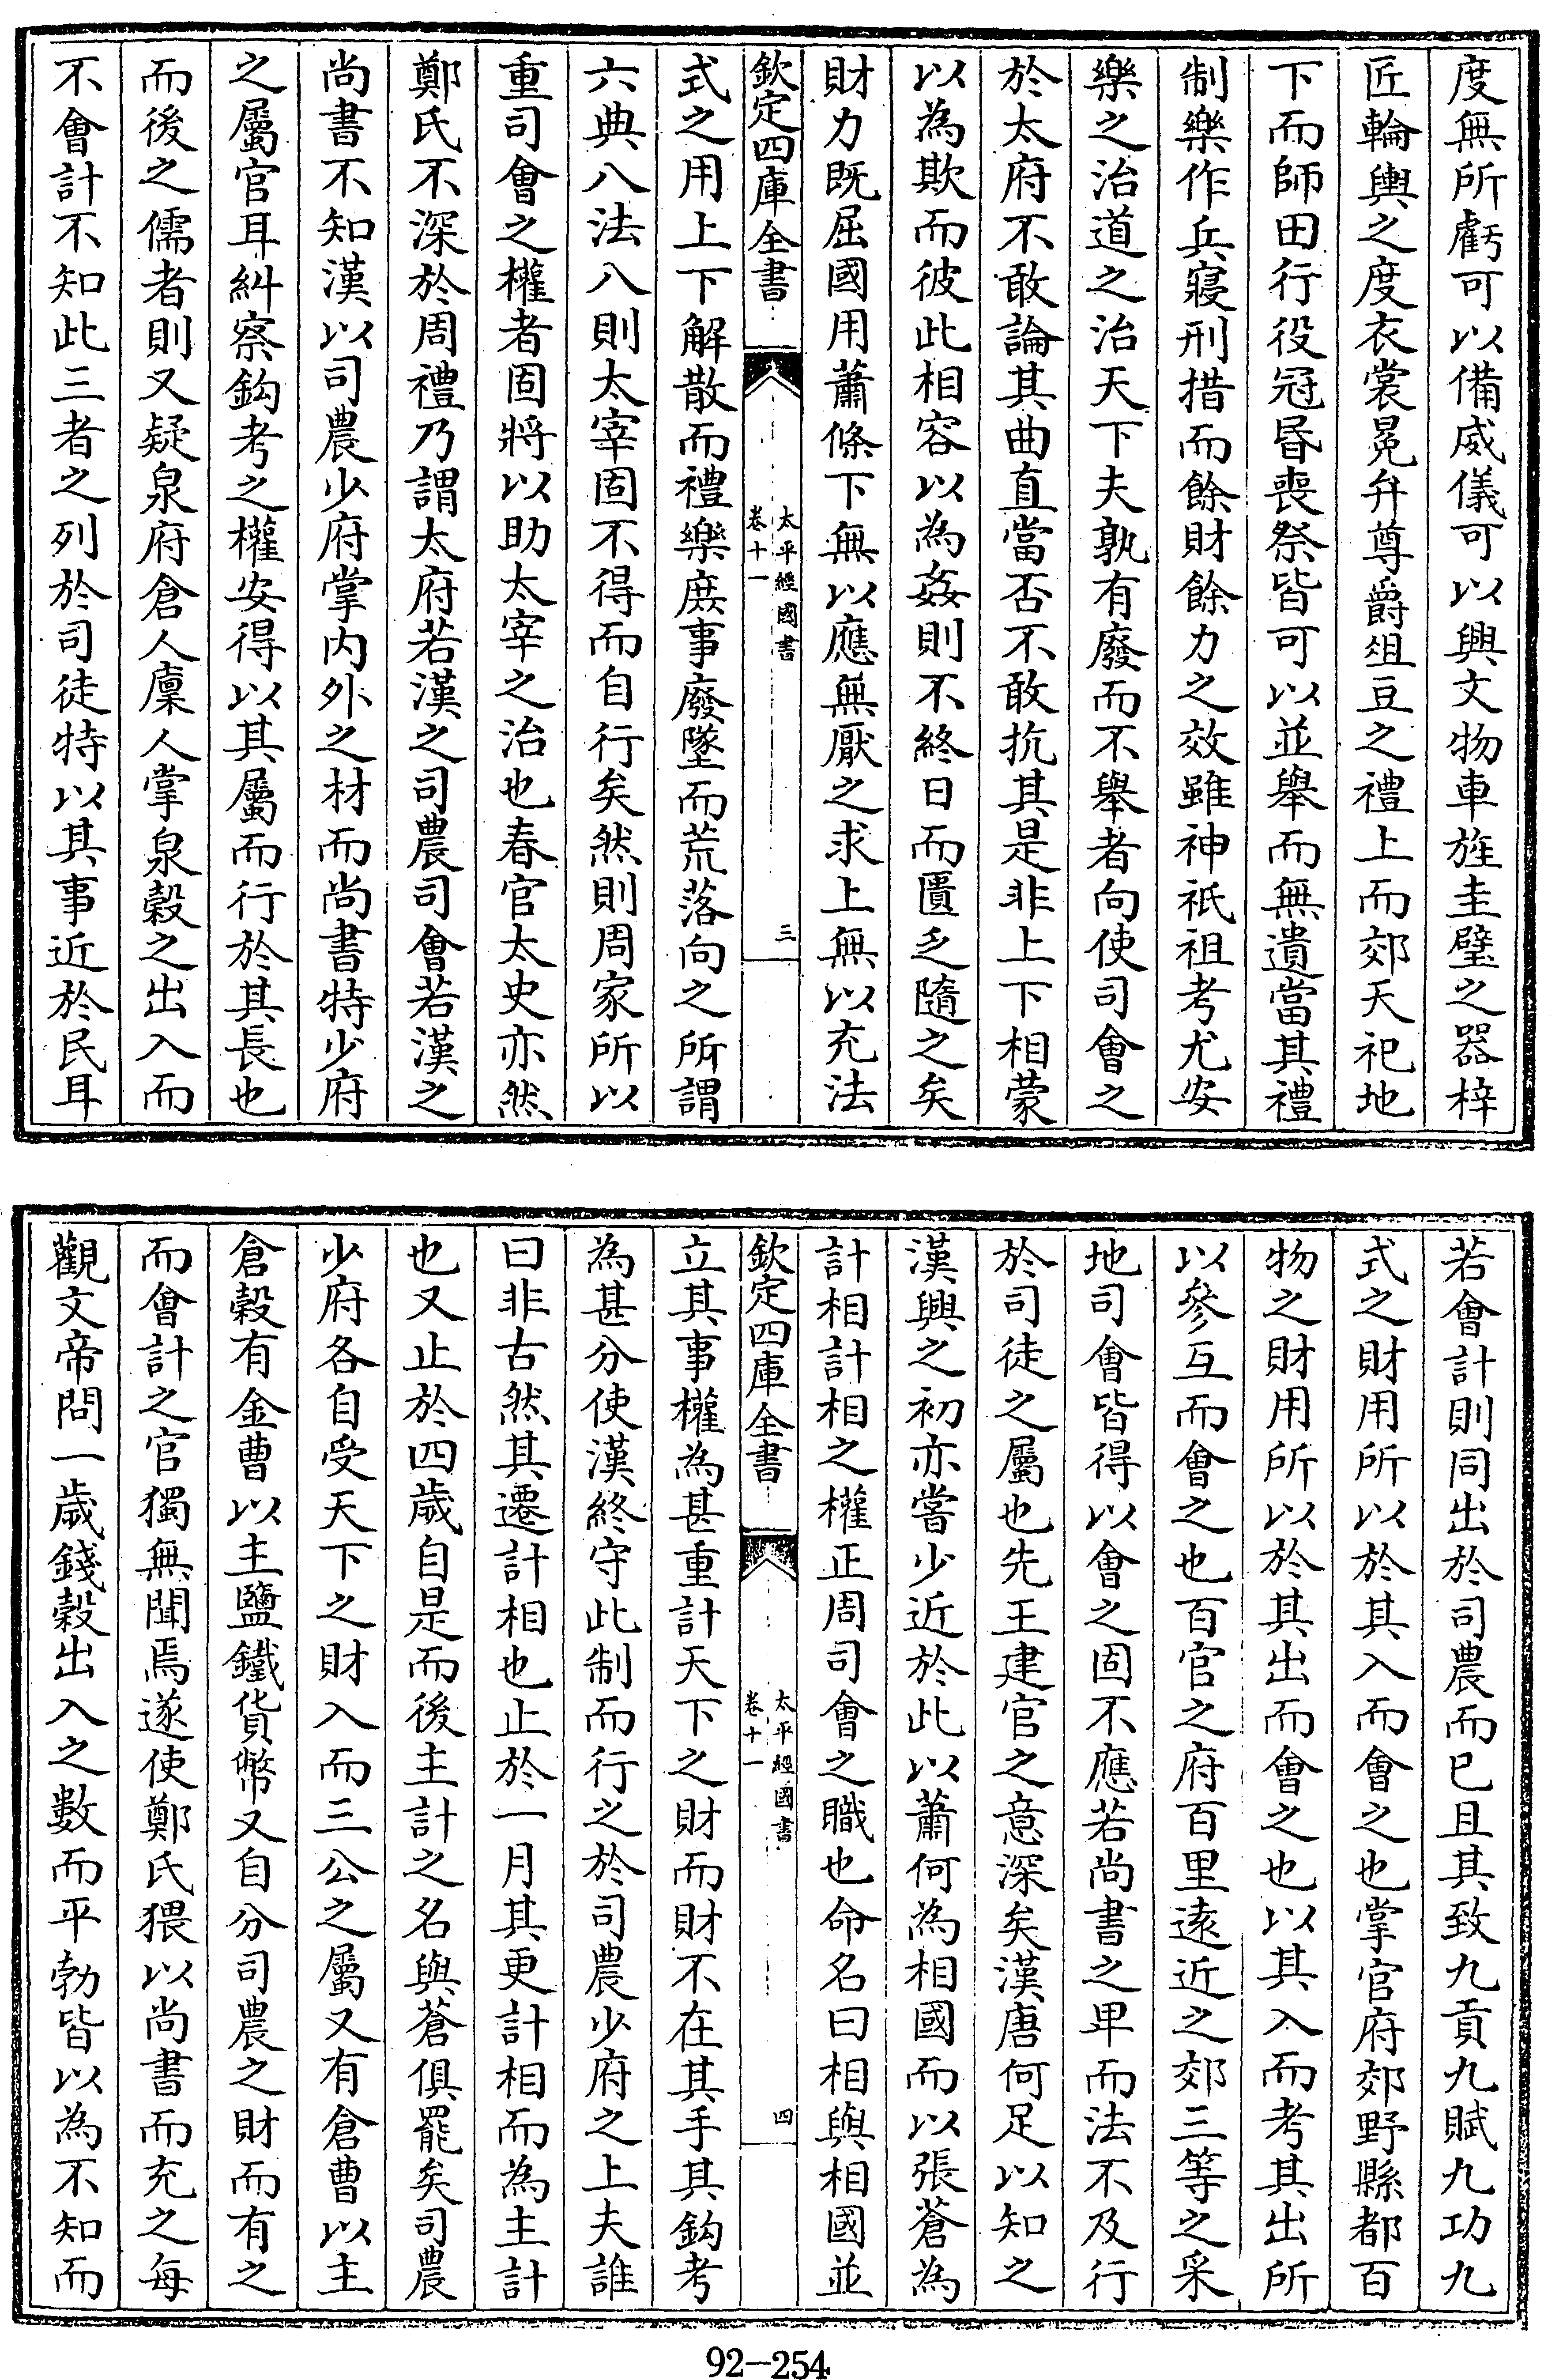 度無所虧可以備威儀可以興文物車旌圭璧之器梓
匠輪輿之度衣裳冕弁尊爵俎豆之禮上而郊天祀地
下而師田行役冠昏喪祭皆可以並舉而無遺當其禮
制樂作兵寢刑措而餘財餘力之效雖神祇祖考尤安
樂之治道之治天下夫孰有廢而不舉者向使司會之
於太府不敢論其曲直當否不敢抗其是非上下相蒙
以為欺而彼此相容以為姦則不終日而匱乏隨之矣
財力既屈國用蕭條下無以應無厭之求上無以充法
欽定四庫全書
太平經國書
卷十一
三
式之用上下解散而禮樂庶事廢墜而荒落向之所謂
六典八法八則太宰固不得而自行矣然則周家所以
重司會之權者固將以助太宰之治也春官太史亦然
鄭氏不深於周禮乃謂太府若漢之司農司會若漢之
尚書不知漢以司農少府掌内外之材而尚書特少府
之屬官耳糾察鈎考之權安得以其屬而行於其長也
而後之儒者則又疑泉府倉人廩人掌泉穀之出入而
不會計不知此三者之列於司徒特以其事近於民耳
若會計則同出於司農而已且其致九貢九賦九功九
式之財用所以於其入而會之也掌官府郊野縣都百
物之財用所以於其出而會之也以其入而考其出所
以參互而會之也百官之府百里遠近之郊三等之采
地司會皆得以會之固不應若尚書之卑而法不及行
於司徒之屬也先王建官之意深矣漢唐何足以知之
漢興之初亦嘗少近於此以蕭何為相國而以張蒼為
計相計相之權正周司會之職也命名曰相與相國並
欽定四庫全書
太平經國書
卷十一
四
立其事權為甚重計天下之財而財不在其手其鈎考
為甚分使漢終守此制而行之於司農少府之上夫誰
曰非古然其遷計相也止於一月其更計相而為主計
也又止於四歲自是而後主計之名與蒼俱罷矣司農
少府各自受天下之財入而三公之屬又有倉曹以主
倉穀有金曹以主鹽鐵貨幣又自分司農之財而有之
而會計之官獨無聞焉遂使鄭氏猥以尚書而充之每
觀文帝問一歲錢穀出入之數而平勃皆以為不知而
92-254